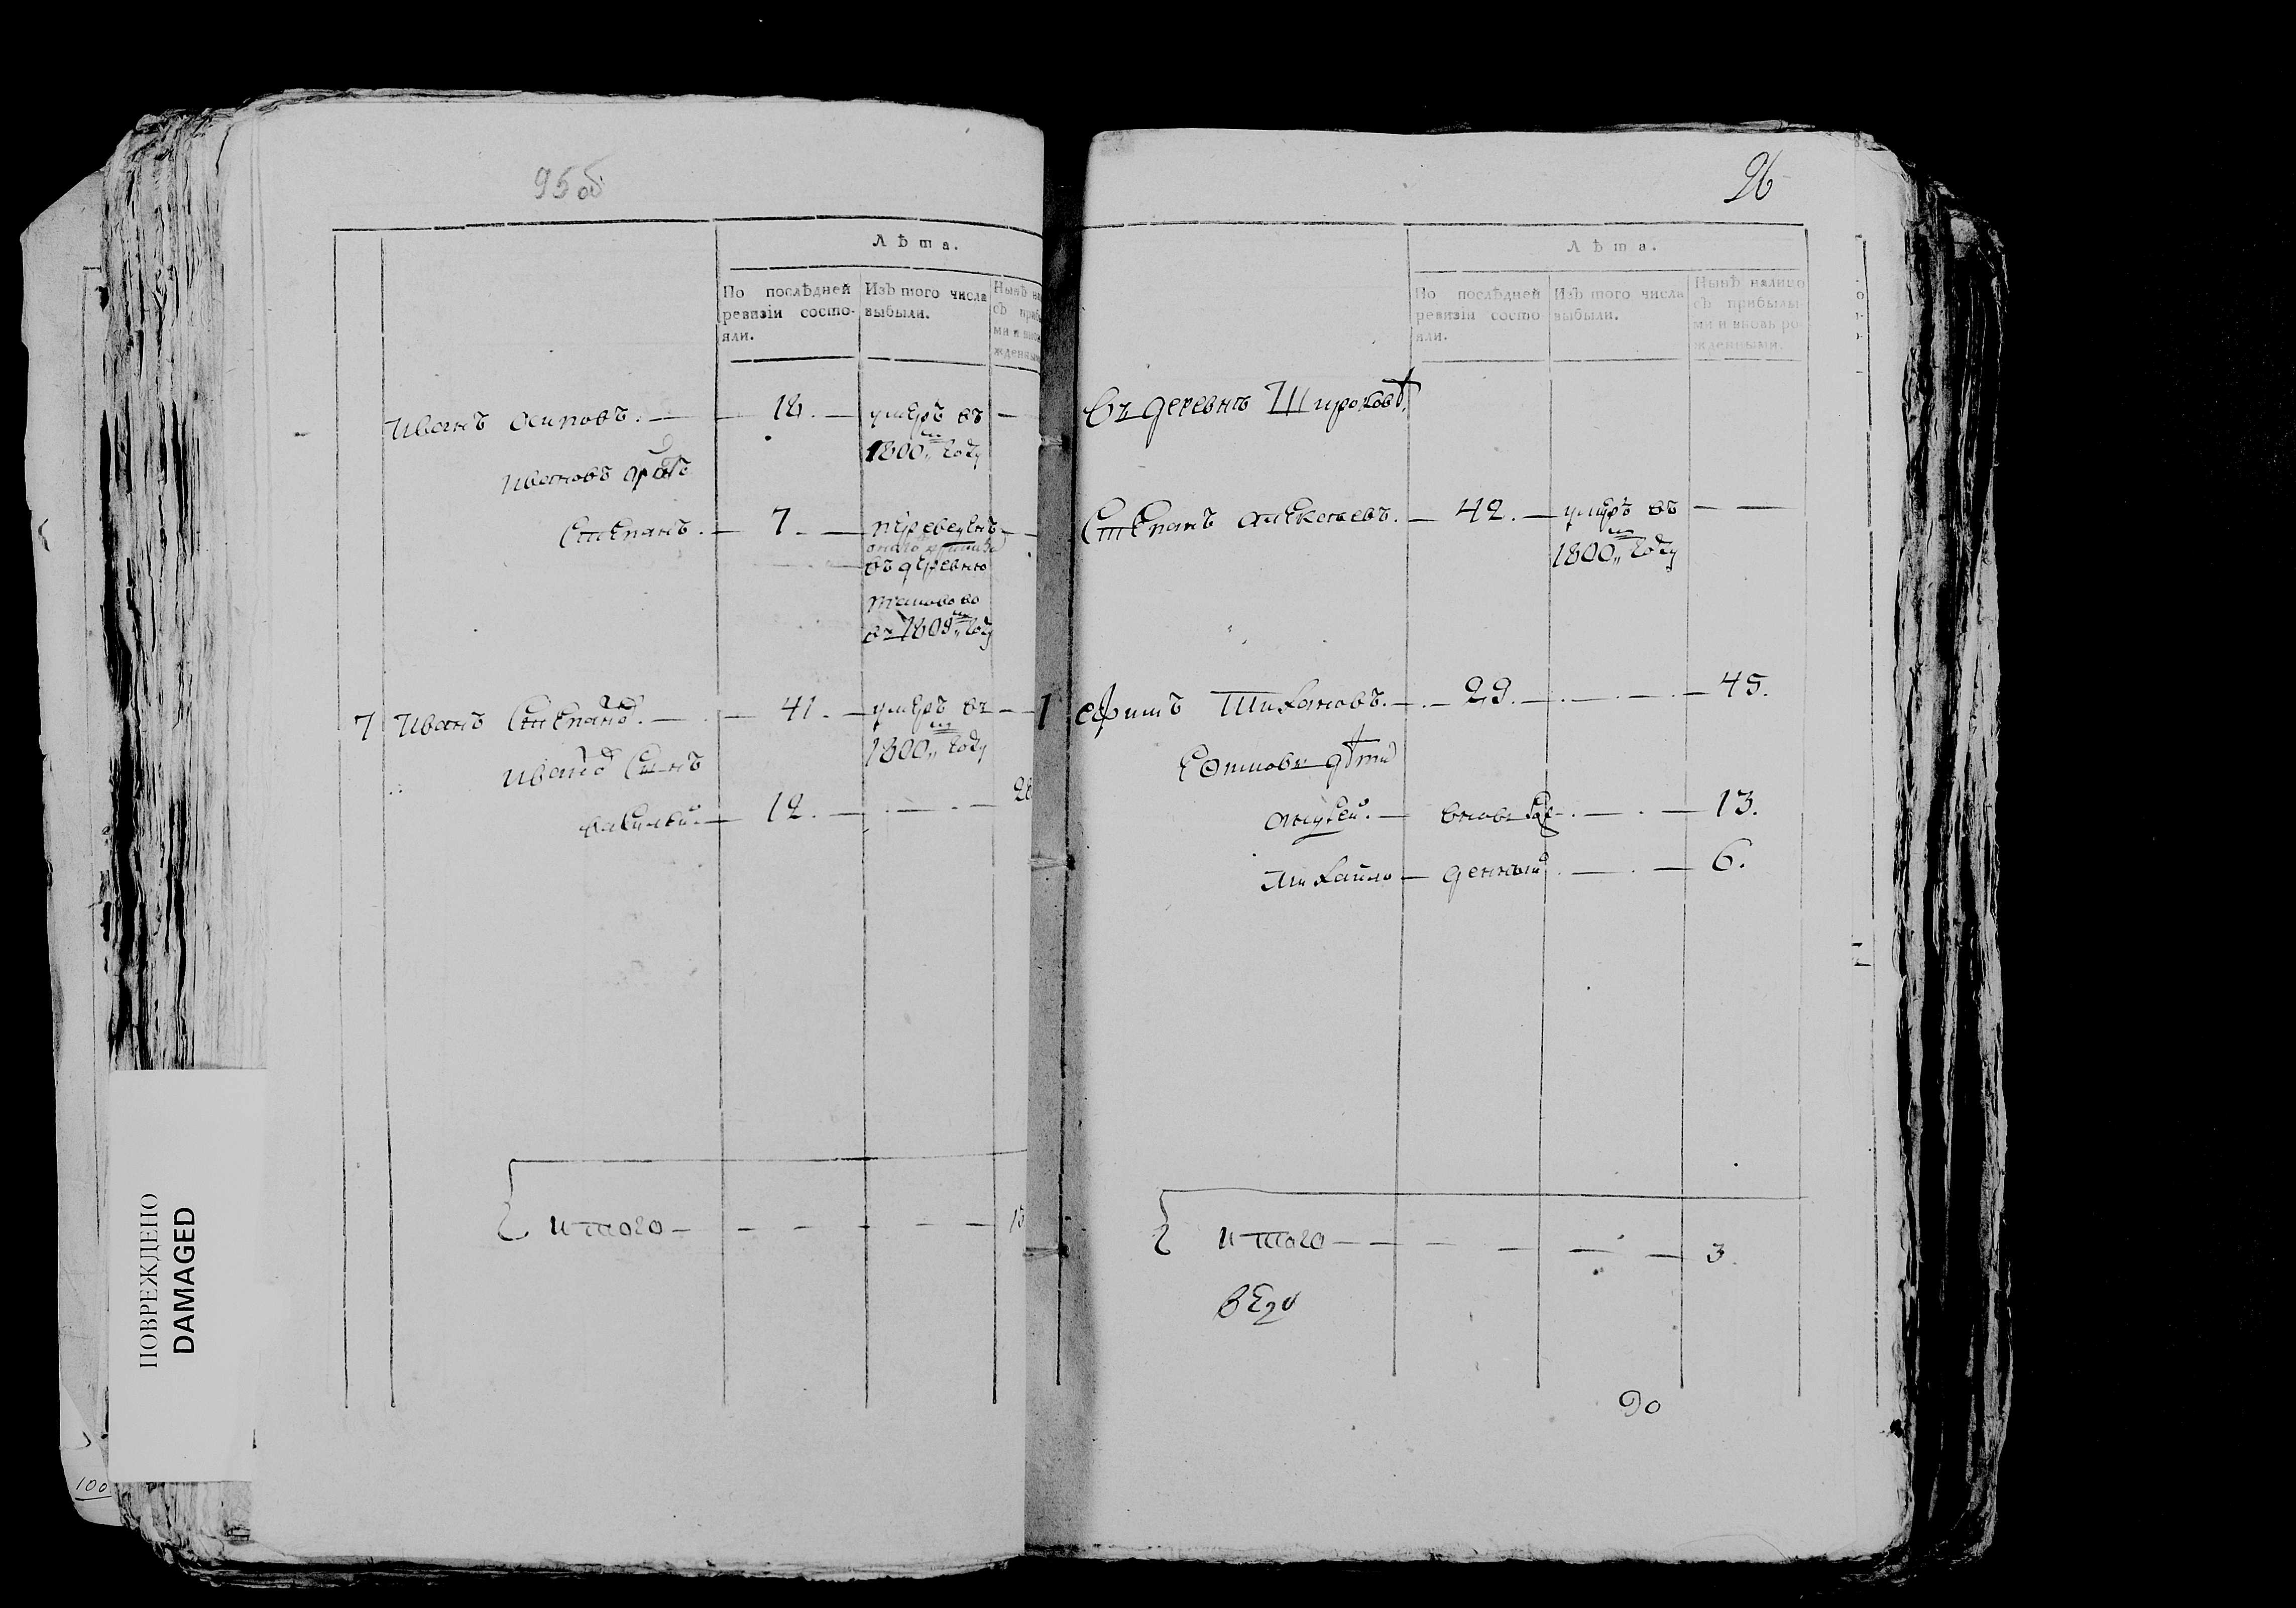 95 об
Лѣта.
По послѣдней ревизіи состо-
яли.
Изъ того числа
выбыли.
Нынѣ
съ
ми и
Иванъ Осиповъ. — 18. — умеръ въ —
1800м году
Ивановъ братъ
Степанъ. — 7 — переведенъ —
въ деревню
въ 1809м году
7 Иванъ Степановъ. — 41. — умеръ въ —
1800м году
Ивановъ Сынъ
Василей — 12. — — 28
Итого — — — — — —
96
Лѣта.
По послѣдней
ревизіи состо
яли.
Изъ того числа
выбыли.
Нынѣ налицо
съ прибылы-
ми и вновь ро-
жденными.
Въ деревнѣ Широковѣ
Степанъ Алексѣевъ. — 42. — умеръ въ — —
1800м году
1 Ефимъ Тихановъ. — 29. — — — 45.
Ефимовы дѣти
— вновь рож — — 13.
Михайло — денныи — — 6.
Итого — — — — — — 3.
90
100
ПОВРЕЖДЕНО
DAMAGED